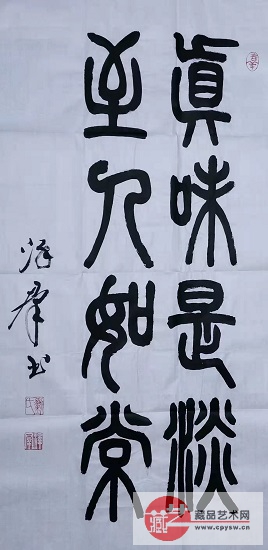 真味是淡
至人如常
群书
藏品艺术网
www.cpysw.com